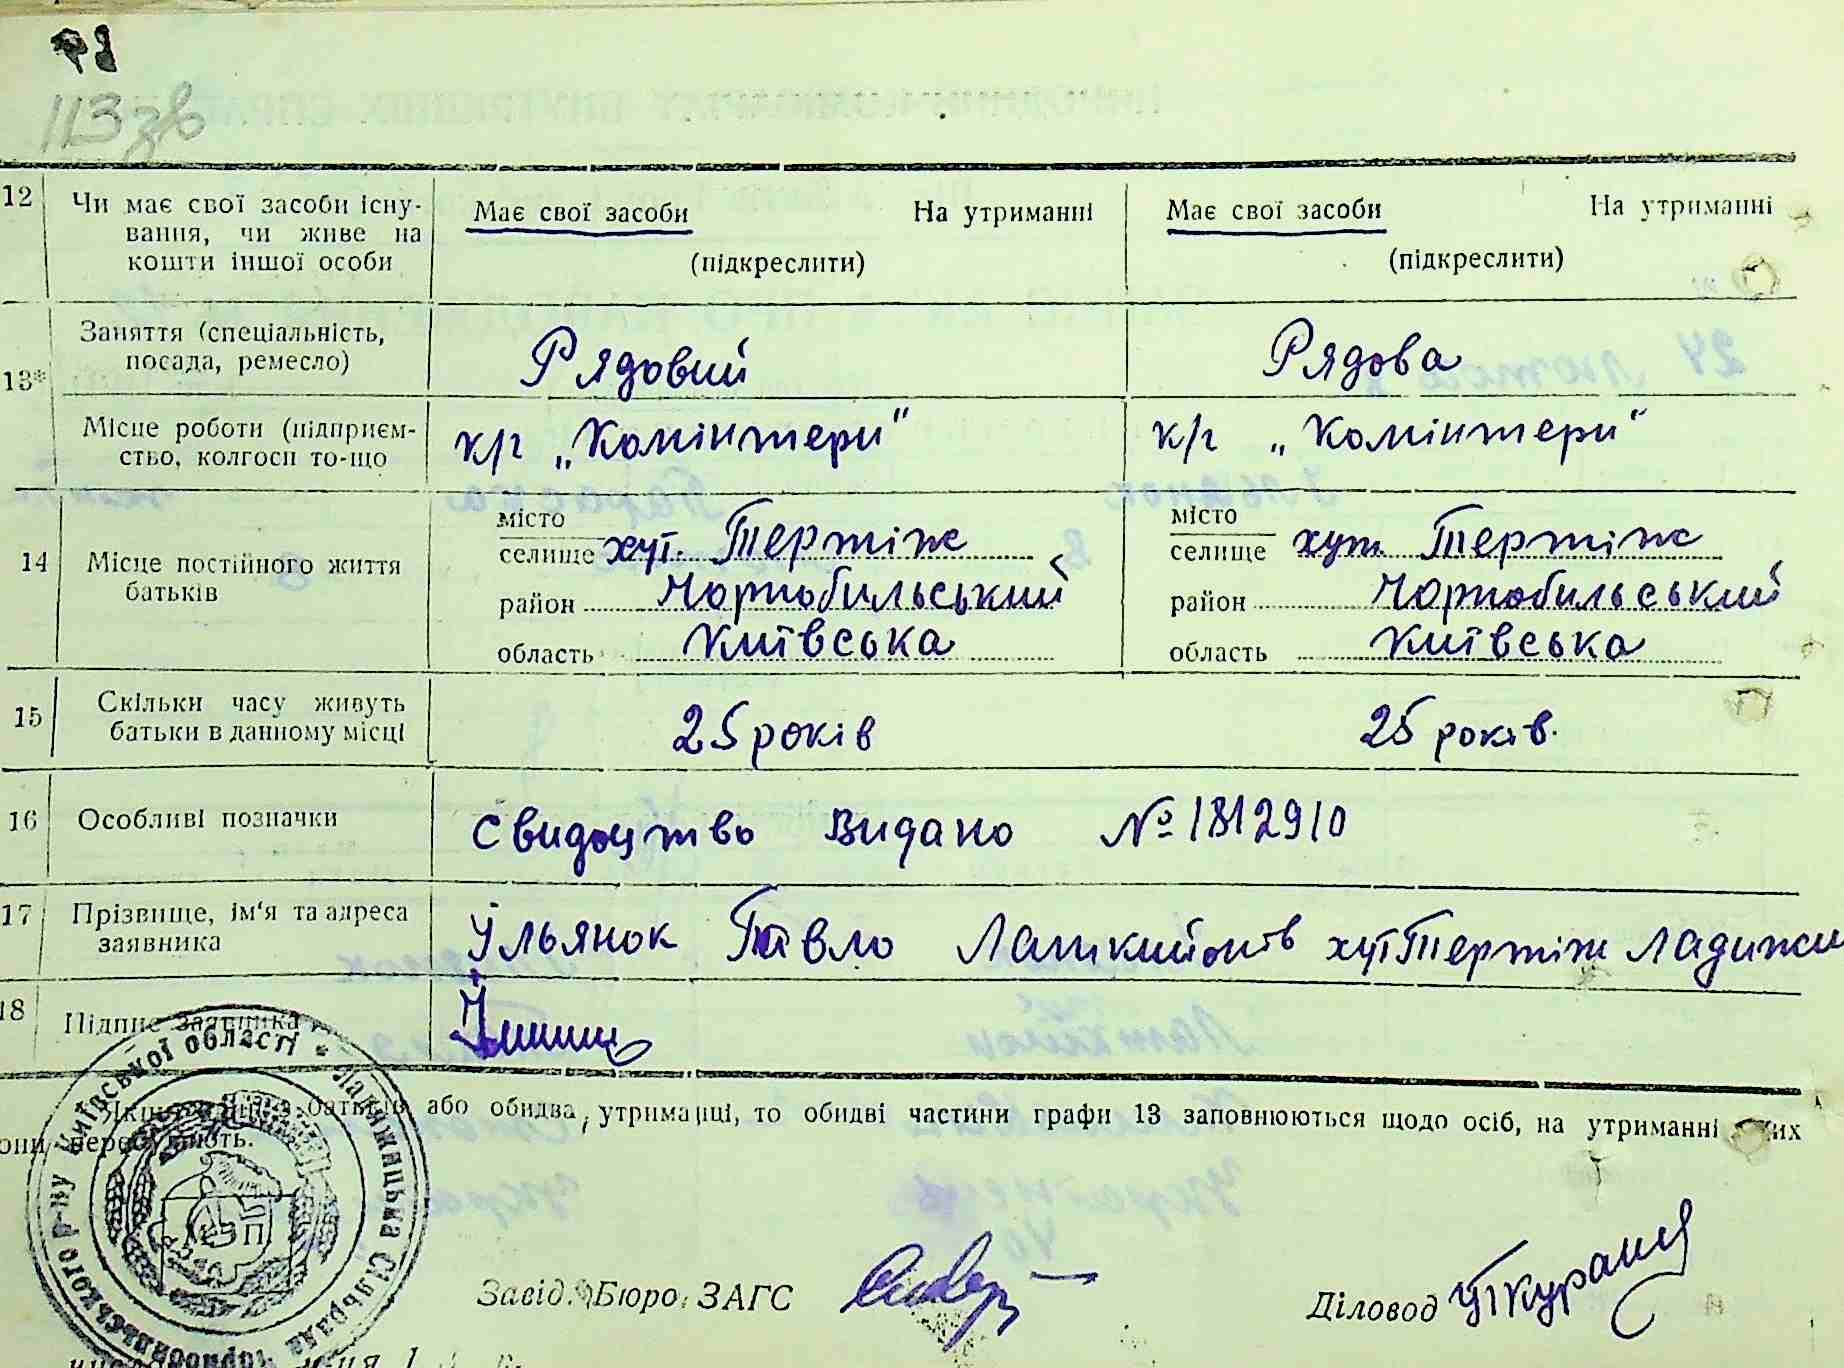 113 зв
12 Чи має свої засоби існу-
вання, чи живе на
кошти іншої особи
Має свої засоби На утриманні
(підкреслити)
Має свої засоби На утриманні
(підкреслити)
13* Заняття (спеціальність,
посада, ремесло)
Рядовий
Рядова
Місце роботи (підприєм-
ство, колгосп то-що
к/г „Комінтерн"
к/г „Комінтерн"
14 Місце постійного життя
батьків
місто
селище хут. Тержіж
район Чорнобильський
область Київська
місто
селище хут. Тержіж
район Чорнобильський
область Київська
15 Скільки часу живуть
батьки в данному місці
25 років
25 років.
16 Особливі позначки
Свидоцтво видано № 1812910
17 Прізвище, ім'я та адреса
заявника
Ільянок Павло хут Тержіж Ладижи
18 Підпис заявника
батьків або обидва утриманці, то обидві частини графи 13 заповнюються щодо осіб, на утриманні яких
вони перебувають.
Київської області * Ладижицька Сільрада Чорнобильського р-ну
Завід. Бюро ЗАГС
Діловод